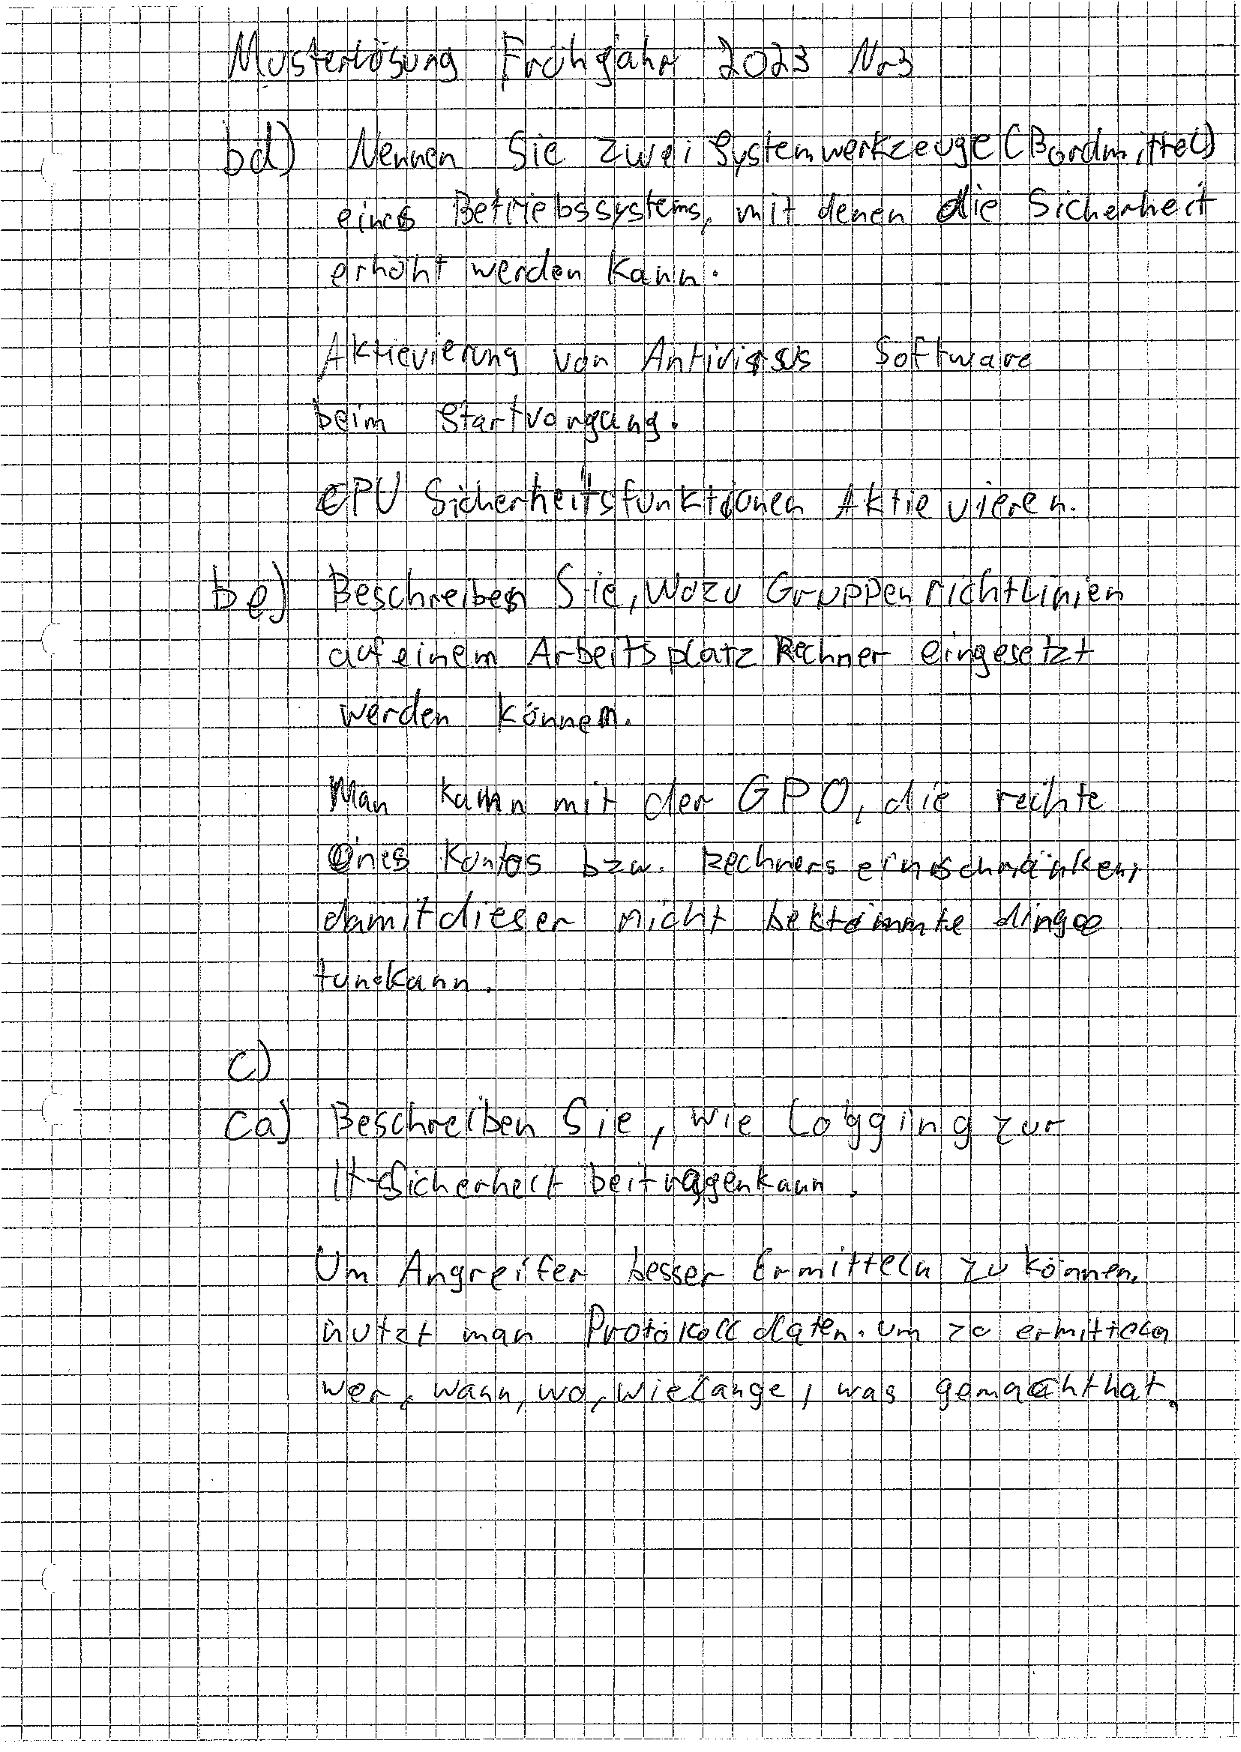 Musterlösung Frühjahr 2023 Nr3
bd) Nennen Sie zwei Systemwerkzeuge (Bordmittel)
eines Betriebssystems, mit denen die Sicherheit
erhöht werden kann.
Aktievierung von Antivirus Software
beim Startvorgang.
CPU Sicherheitsfunktionen Aktievieren.
be) Beschreiben Sie, wozu Gruppenrichtlinien
auf einem Arbeitsplatz Rechner eingesetzt
werden können.
Man kann mit der GPO, die rechte
eines Kontos bzw. Rechners einschränken,
damit dieser nicht bestimmte dinge
tun kann.
c)
ca) Beschreiben Sie, wie Logging zur
It-Sicherheit beitragen kann.
Um Angreifer besser Ermitteln zu können,
nutzt man Protokoll daten. um zu ermitteln
wer, wann, wo, wie lange, was gemacht hat.